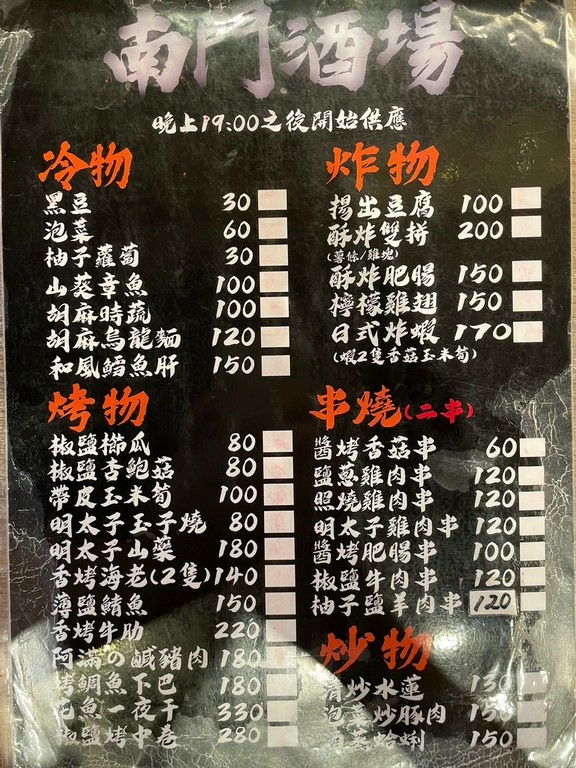 南門酒場
晚上19:00之後開始供應
冷物
黑豆 30
泡菜 60
柚子蘿蔔 30
山葵章魚 100
胡麻時蔬 100
胡麻烏龍麵 120
和風鱈魚肝 150
炸物
揚出豆腐 100
酥炸雙拼 200
(薯條/雞塊)
酥炸肥腸 150
檸檬雞翅 150
日式炸蝦 170
(蝦2隻香菇玉米筍)
烤物
椒鹽櫛瓜 80
椒鹽杏鮑菇 80
帶皮玉米筍 100
明太子玉子燒 80
明太子山藥 180
香烤海老(2隻) 140
薄鹽鯖魚 150
香烤牛肋 220
阿滿の鹹豬肉 180
烤鯛魚下巴 180
魚一夜干 330
椒鹽烤中卷 280
串燒(二串)
醬烤香菇串 60
鹽蔥雞肉串 120
照燒雞肉串 120
明太子雞肉串 120
醬烤肥腸串 100
椒鹽牛肉串 120
柚子鹽羊肉串 120
炒物
炒水蓮 130
泡菜炒豚肉 150
蛤蜊 150